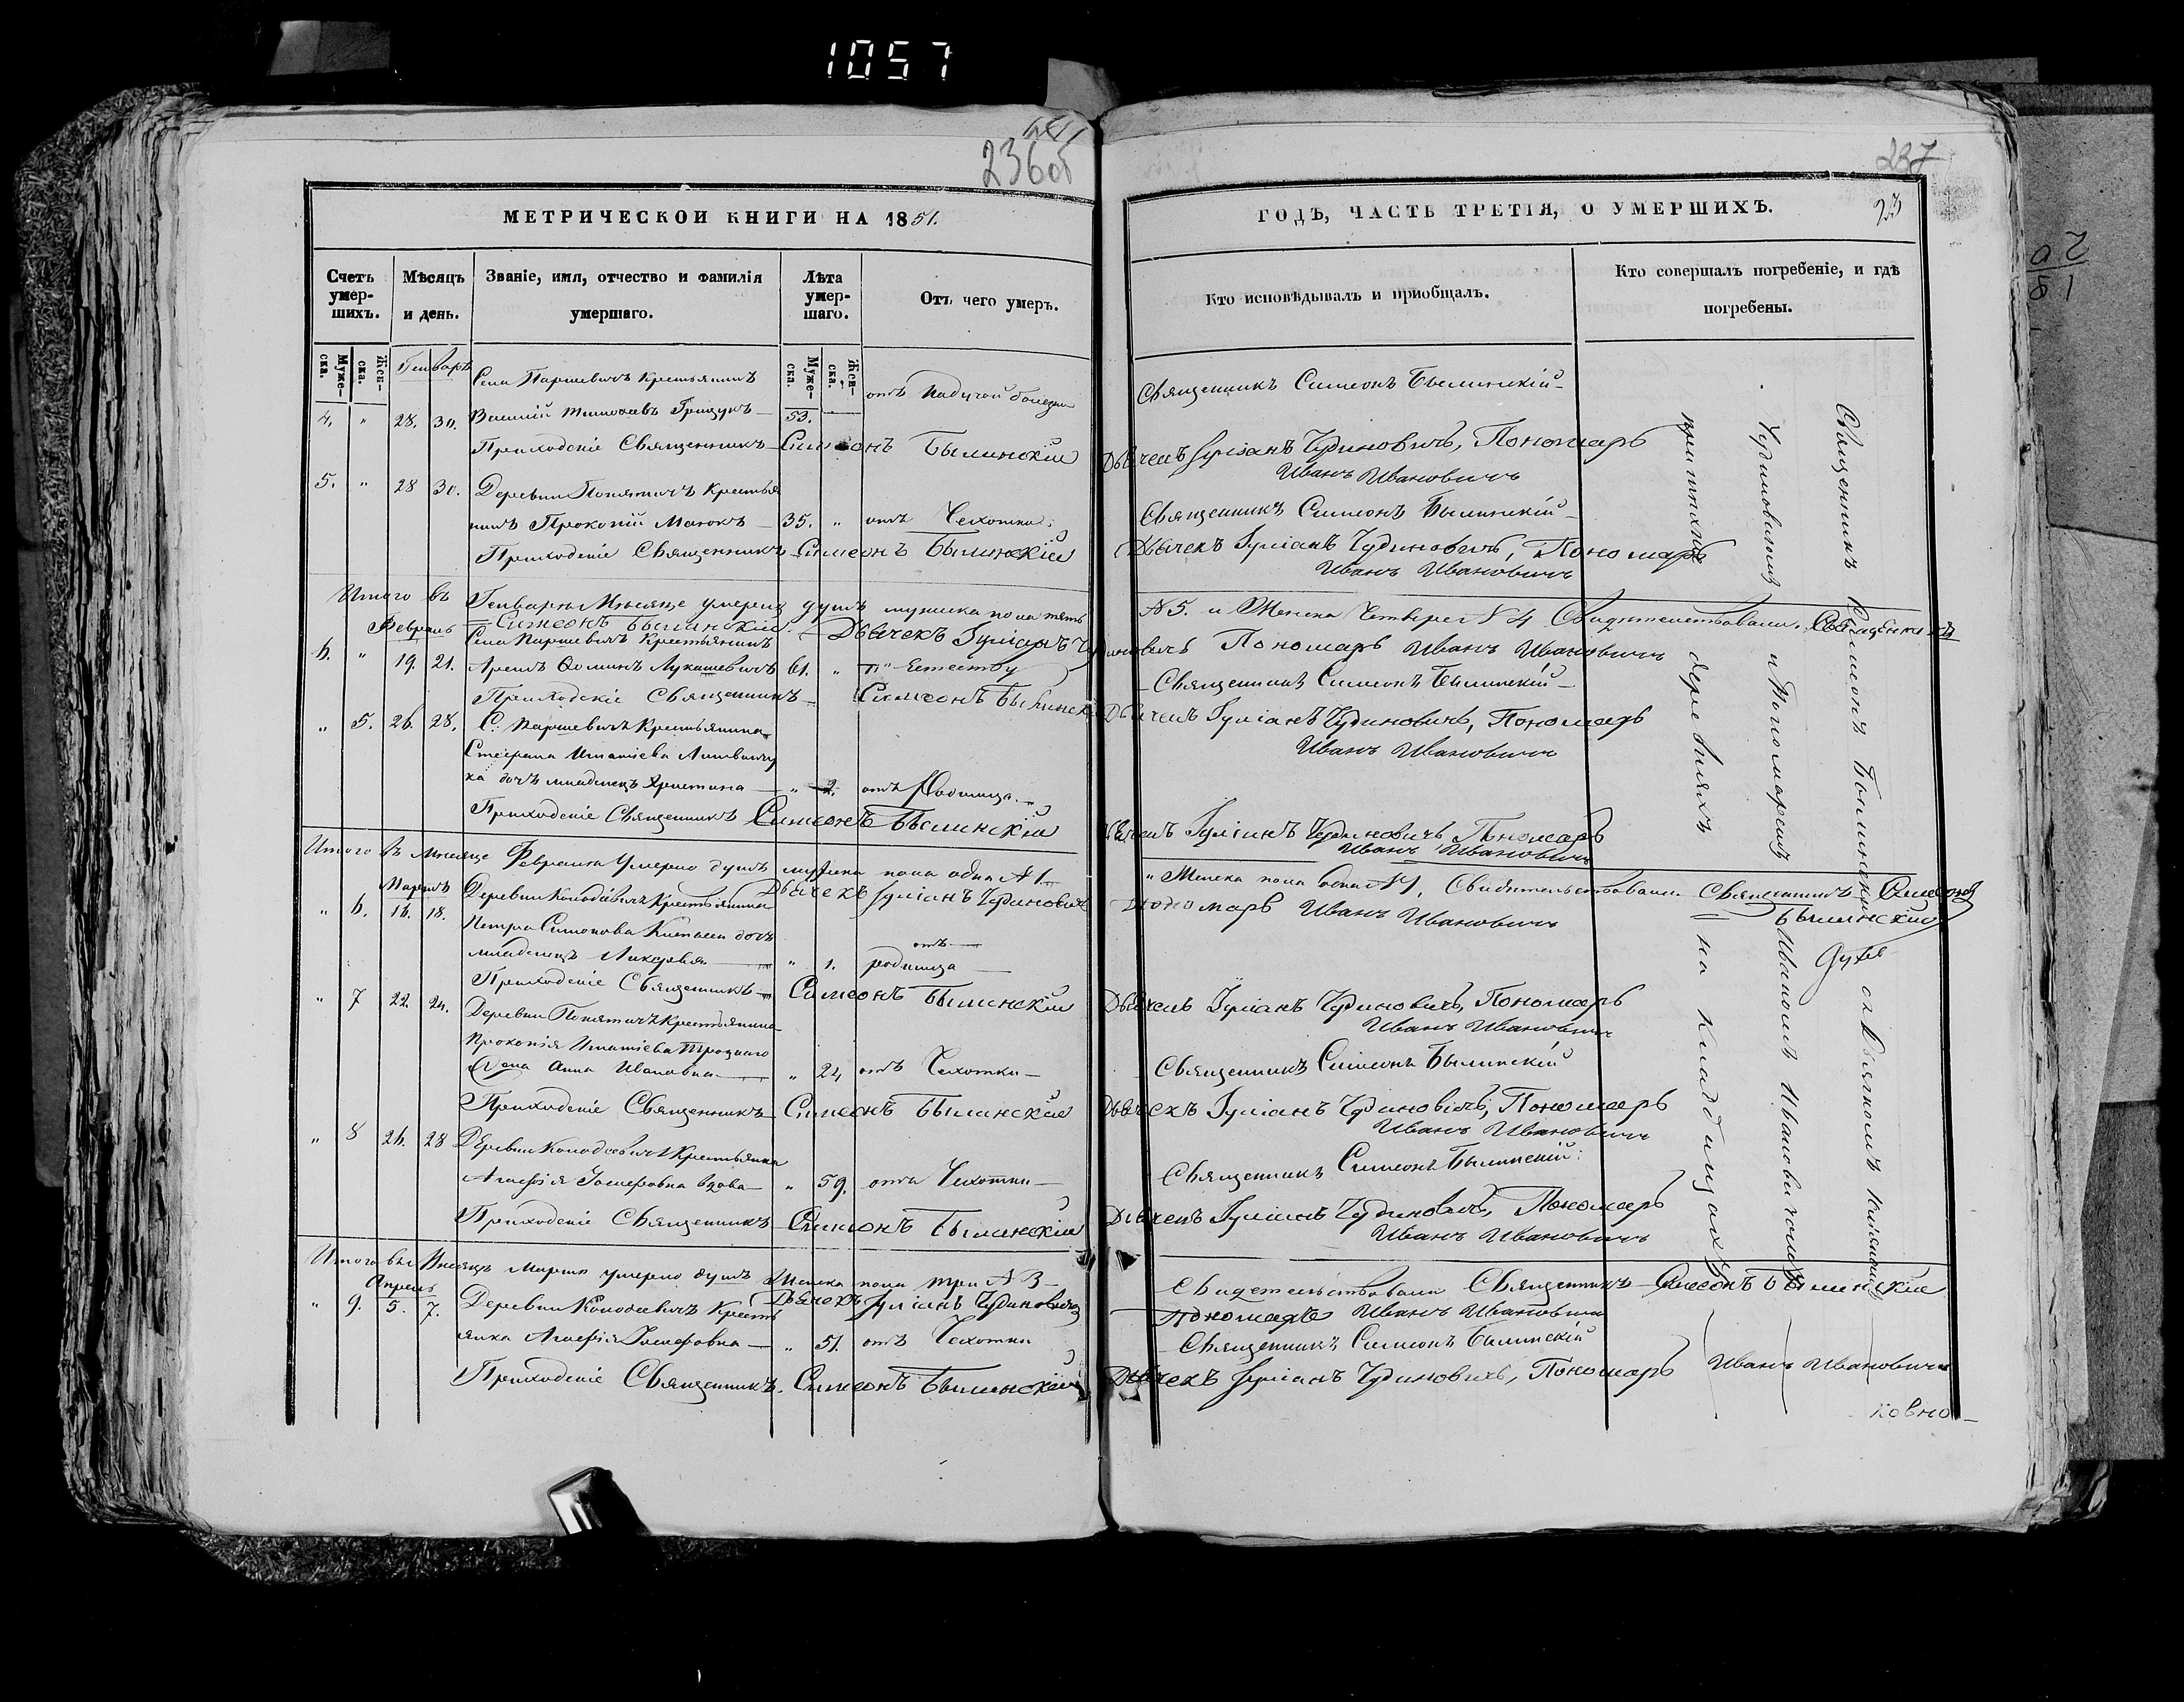 1057
236об
237
МЕТРИЧЕСКОЙ КНИГИ НА 1851.
ГОДЪ, ЧАСТЬ ТРЕТІЯ, О УМЕРШИХЪ.
23
Счетъ умер-шихъ.
Мѣсяцъ и день.
Званіе, имя, отчество и фамилія умершаго.
Лѣта умер-шаго.
Отъ чего умеръ.
Кто исповѣдывалъ и пріобщалъ.
Кто совершалъ погребеніе, и гдѣ погребены.
Муже-ска.
Жен-ска.
Муже-ска.
Жен-ска.
Генварь
Села Паршевичъ Крестьянинъ
отъ Падучей болезни
Священникъ Симеонъ Былинскій
4. " 28. 30. Василій Тимохеевъ Грицукъ 53.
Приходскіе Священникъ Симеонъ Былинскій
Дьячекъ Іуліанъ Чудиновичъ, Пономарь
Иванъ Ивановичъ
5. " 28 30. Деревни Понятичъ Крестья
нинъ Прокопій Матюкъ 35. " отъ Чехотки
Священникъ Симеонъ Былинскій
Приходскіе Священникъ Симеонъ Былинскій
Дьячекъ Іуліанъ Чудиновичъ, Пономарь
Иванъ Ивановичъ
Итого въ Генварѣ Мѣсяце умерло душъ мужска пола пять
№ 5. и Женска Четыре № 4 Свидѣтельствовали. Священникъ
Симеонъ Былинскій. Дьячекъ Іуліанъ Чудиновичъ Пономарь Иванъ Ивановичъ
Февраль
Села Паршевичъ Крестьянинъ
6. " 19. 21. Ѳоминъ Лукашевичъ 61. " Естеству
Священникъ Симеонъ Былинскій
Приходскіе Священникъ Симеонъ Былинскій
Дьячекъ Іуліанъ Чудиновичъ, Пономарь
Иванъ Ивановичъ
" 5. 26. 28. С. Паршевичъ Крестьянина
Стефана Игнатіева
ка дочь младенецъ Христина " 2. отъ Родимца
Приходскіе Священникъ Симеонъ Былинскій
Дьячекъ Іуліанъ Чудиновичъ Пономарь
Иванъ Ивановичъ
Итого въ Мѣсяце Февралѣ Умерло душъ мужска пола одна № 1
" Женска пола одна № 1. Свидетельствовали Священникъ Симеонъ
Былинскій
Дьячекъ Іуліанъ Чудиновичъ
Пономарь Иванъ Ивановичъ
Мартъ
" 6. 16. 18. Деревни Колодѣевичъ Крестьянина
Петра Симонова дочь
младенецъ " 1. отъ родимца
Приходскіе Священникъ Симеонъ Былинскій
Дьячекъ Іуліанъ Чудиновичъ, Пономарь
Иванъ Ивановичъ
" 7 22. 24. Деревни Понятичъ Крестьянина
Прокопія Игнатіева
Жена Анна Ивановна " 24 отъ Чехотки
Священникъ Симеонъ Былинскій
Приходскіе Священникъ Симеонъ Былинскій
Дьячекъ Іуліанъ Чудиновичъ, Пономарь
Иванъ Ивановичъ
" 8 26. 28 Деревни Колодеевичъ Крестьянка
Агафія Іосифовна вдова " 59. отъ Чехотки
Священникъ Симеонъ Былинскій
Приходскіе Священникъ Симеонъ Былинскій
Дьячекъ Іуліанъ Чудиновичъ, Пономарь
Иванъ Ивановичъ
Итого въ Мѣсяцѣ Мартѣ умерло душъ Женска пола три № 3
Свидетельствовали Священникъ Симеонъ Былинскій
Дьячекъ Іуліанъ Чудиновичъ
Пономарь Иванъ Ивановичъ
Апрель
" 9. 5. 7. Деревни Колодеевичъ Кресть
янка Агафія Іосифовна " 51. отъ Чехотки
Священникъ Симеонъ Былинскій
Приходскіе Священникъ Симеонъ Былинскій
Дьячекъ Іуліанъ Чудиновичъ, Пономарь
Иванъ Ивановичъ
Священникъ Симеонъ Былинскій съ Дьячкомъ Юліаномъ
Чудиновичемъ и Пономаремъ Иваномъ Ивановичемъ
деревняхъ на кладбищахъ